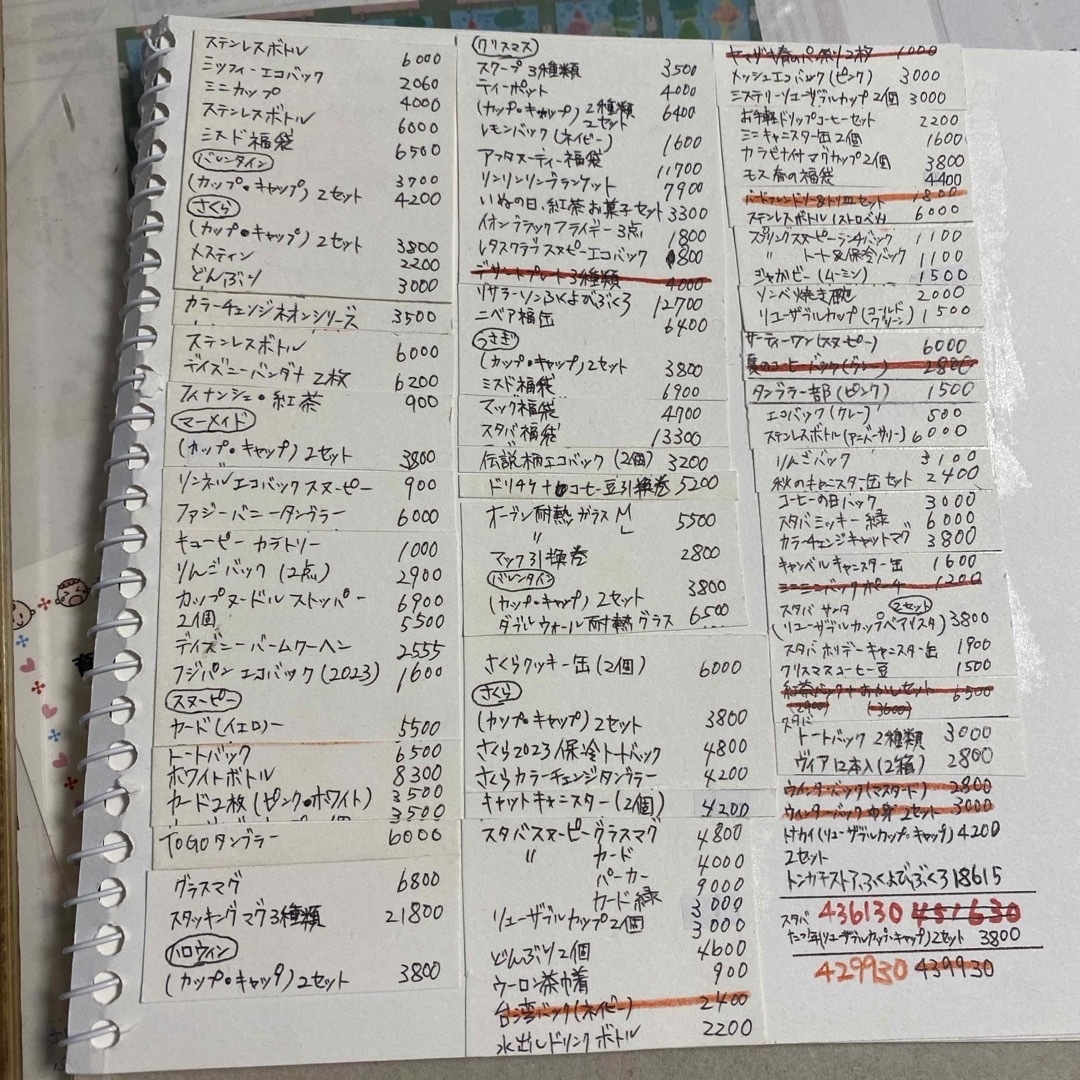 ステンレスボトル 6000
ミッフィーエコバック 2060
ミニカップ 4000
ステンレスボトル 6000
ミスド福袋 6500
バレンタイン
(カップ・キャップ) 2セット 3700
4200
さくら
(カップ・キャップ) 2セット 3800
メスティン 2200
どんぶり 3000
カラーチェンジネオンシリーズ 3500
ステンレスボトル 6000
デイズニーバンダナ 2枚 6200
フィナンシェ・紅茶 900
マーメイド
(カップ・キャップ) 2セット 3800
リンネルエコバックスヌーピー 900
ファジーバニータンブラー 6000
キューピー カラトリー 1000
りんごバック (2点) 2900
カップヌードルストッパー 6900
2個 5500
デイズニーバームクーヘン 2555
フジパンエコバック(2023) 1600
スヌーピー
カード(イエロー 5500
トートバック 6500
ホワイトボトル 8300
カード2枚(ピンク・ホワイト) 3500
3500
TOGOタンブラー 6000
グラスマグ 6800
スタッキングマグ3種類 21800
ハロウィン
(カップ・キャップ) 2セット 3800
クリスマス
スクープ 3種類 3500
ティーポット 4000
(カップ・キャップ) 2種類 6400
2セット
レモンバック(ネイビー) 1600
アフタヌーンティー福袋 11700
リンリンリンブランケット 7900
いぬの日、紅茶お菓子セット 3300
イオンブラックフライデー3点 1800
レタスクラブスヌーピーエコバック 800
デザートプレート3種類 4000
リサラーソンふくよびぶくろ 12700
ニベア福缶 6400
うさぎ
(カップ・キャップ) 2セット 3800
ミスド福袋 6900
マック福袋 4700
スタバ福袋 13300
伝説柄エコバック (2個) 3200
ドリチケ+コーヒー豆引換券 5200
オーブン耐熱ガラス M 5500
〃 L
マック引換券 2800
バレンタイン
(カップ・キャップ) 2セット 3800
ダブルウォール耐熱グラス 6500
さくらクッキー缶 (2個) 6000
さくら
(カップ・キャップ) 2セット 3800
さくら2023保冷トートバック 4800
さくらカラーチェンジタンブラー 4200
キャットキャニスター (2個) 4200
スタバスヌーピーグラスマグ 4800
〃 カード 4000
パーカー 9000
カード緑 3000
リューザブルカップ2個 3000
どんぶり2個 4600
ウーロン茶巾着 900
台湾バック(ネイビー) 2400
水出しドリンクボトル 2200
ヤマザキ春のパン祭り2枚 1000
メッシュエコバック(ピンク) 3000
ミステリーリューザブルカップ 2個 3000
お手軽ドリップコーヒーセット 2200
ミニキャニスター缶 2個 1600
カラビナ付マグカップ2個 3800
モス 春の福袋 4400
バードフレンドリー&トリ皿セット 1800
ステンレスボトル(ストロベリー) 6000
スプリングスヌーピーランチバック 1100
〃 トート&保冷バック 1100
ジャガビー(ムーミン) 1500
リンベ焼き碗 2000
リユーザブルカップ(コールドグリーン) 1500
サーティーワン(スヌーピー) 6000
夏のコーヒーバック(グレー) 2800
タンブラー部(ピンク) 1500
エコバック(グレー) 500
ステンレスボトル(アニバーサリー) 6000
りんごバック 3100
秋のキャニスター缶セット 2400
コーヒーの日バック 3000
スタバミッキー緑 6000
カラーチェンジキャットマグ 3800
キャンベルキャニスター缶 1600
ミニミニバックポーチ 1200
スタバ サンタ 2セット
(リユーザブルカップベアイスタ) 3800
スタバ ホリデーキャニスター缶 1900
クリスマスコーヒー豆 1500
紅茶バック+おかしセット 6500
2900 (3600)
スタバ
トートバック 2種類 3000
ヴィア12本入(2箱) 2800
ウインターバック(マスタード) 2800
ウインターバック中身 2セット 3000
トナカイ(リューザブルカップ・キャップ) 4200
2セット
トンカチストア、ふくよびぶくろ 18615
スタバ 436130 451630
たつ年(リューザブルカップ・キャップ)2セット 3800
429930 439930